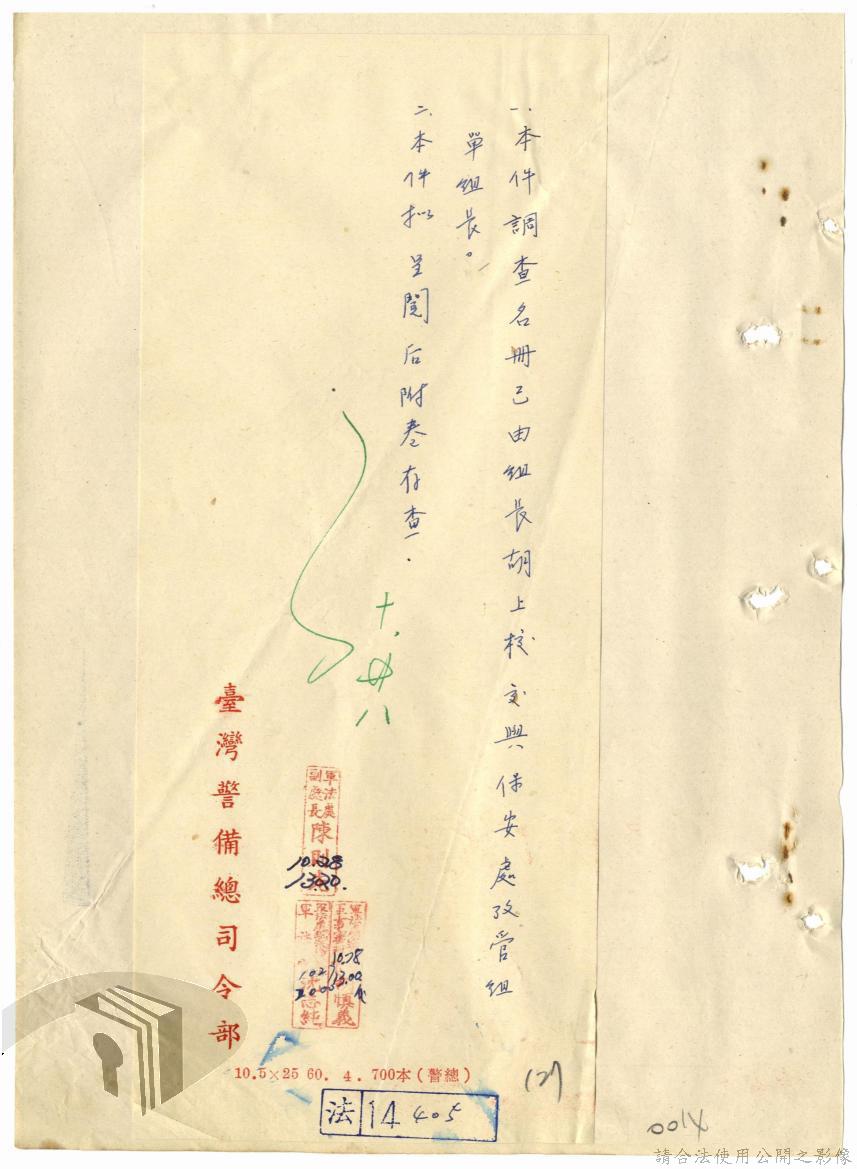 一、本件調查名冊已由組長胡上校交與保安處攷管組
單組長。
二、本件拟呈閱后附卷存查.
十.廿八
軍法處
副處長陳
10.28
1300.
10.28
13.00
慎義
臺灣警備總司令部
10.5×25 60. 4. 700本(警總)
法 14 405
請合法使用公開之影像